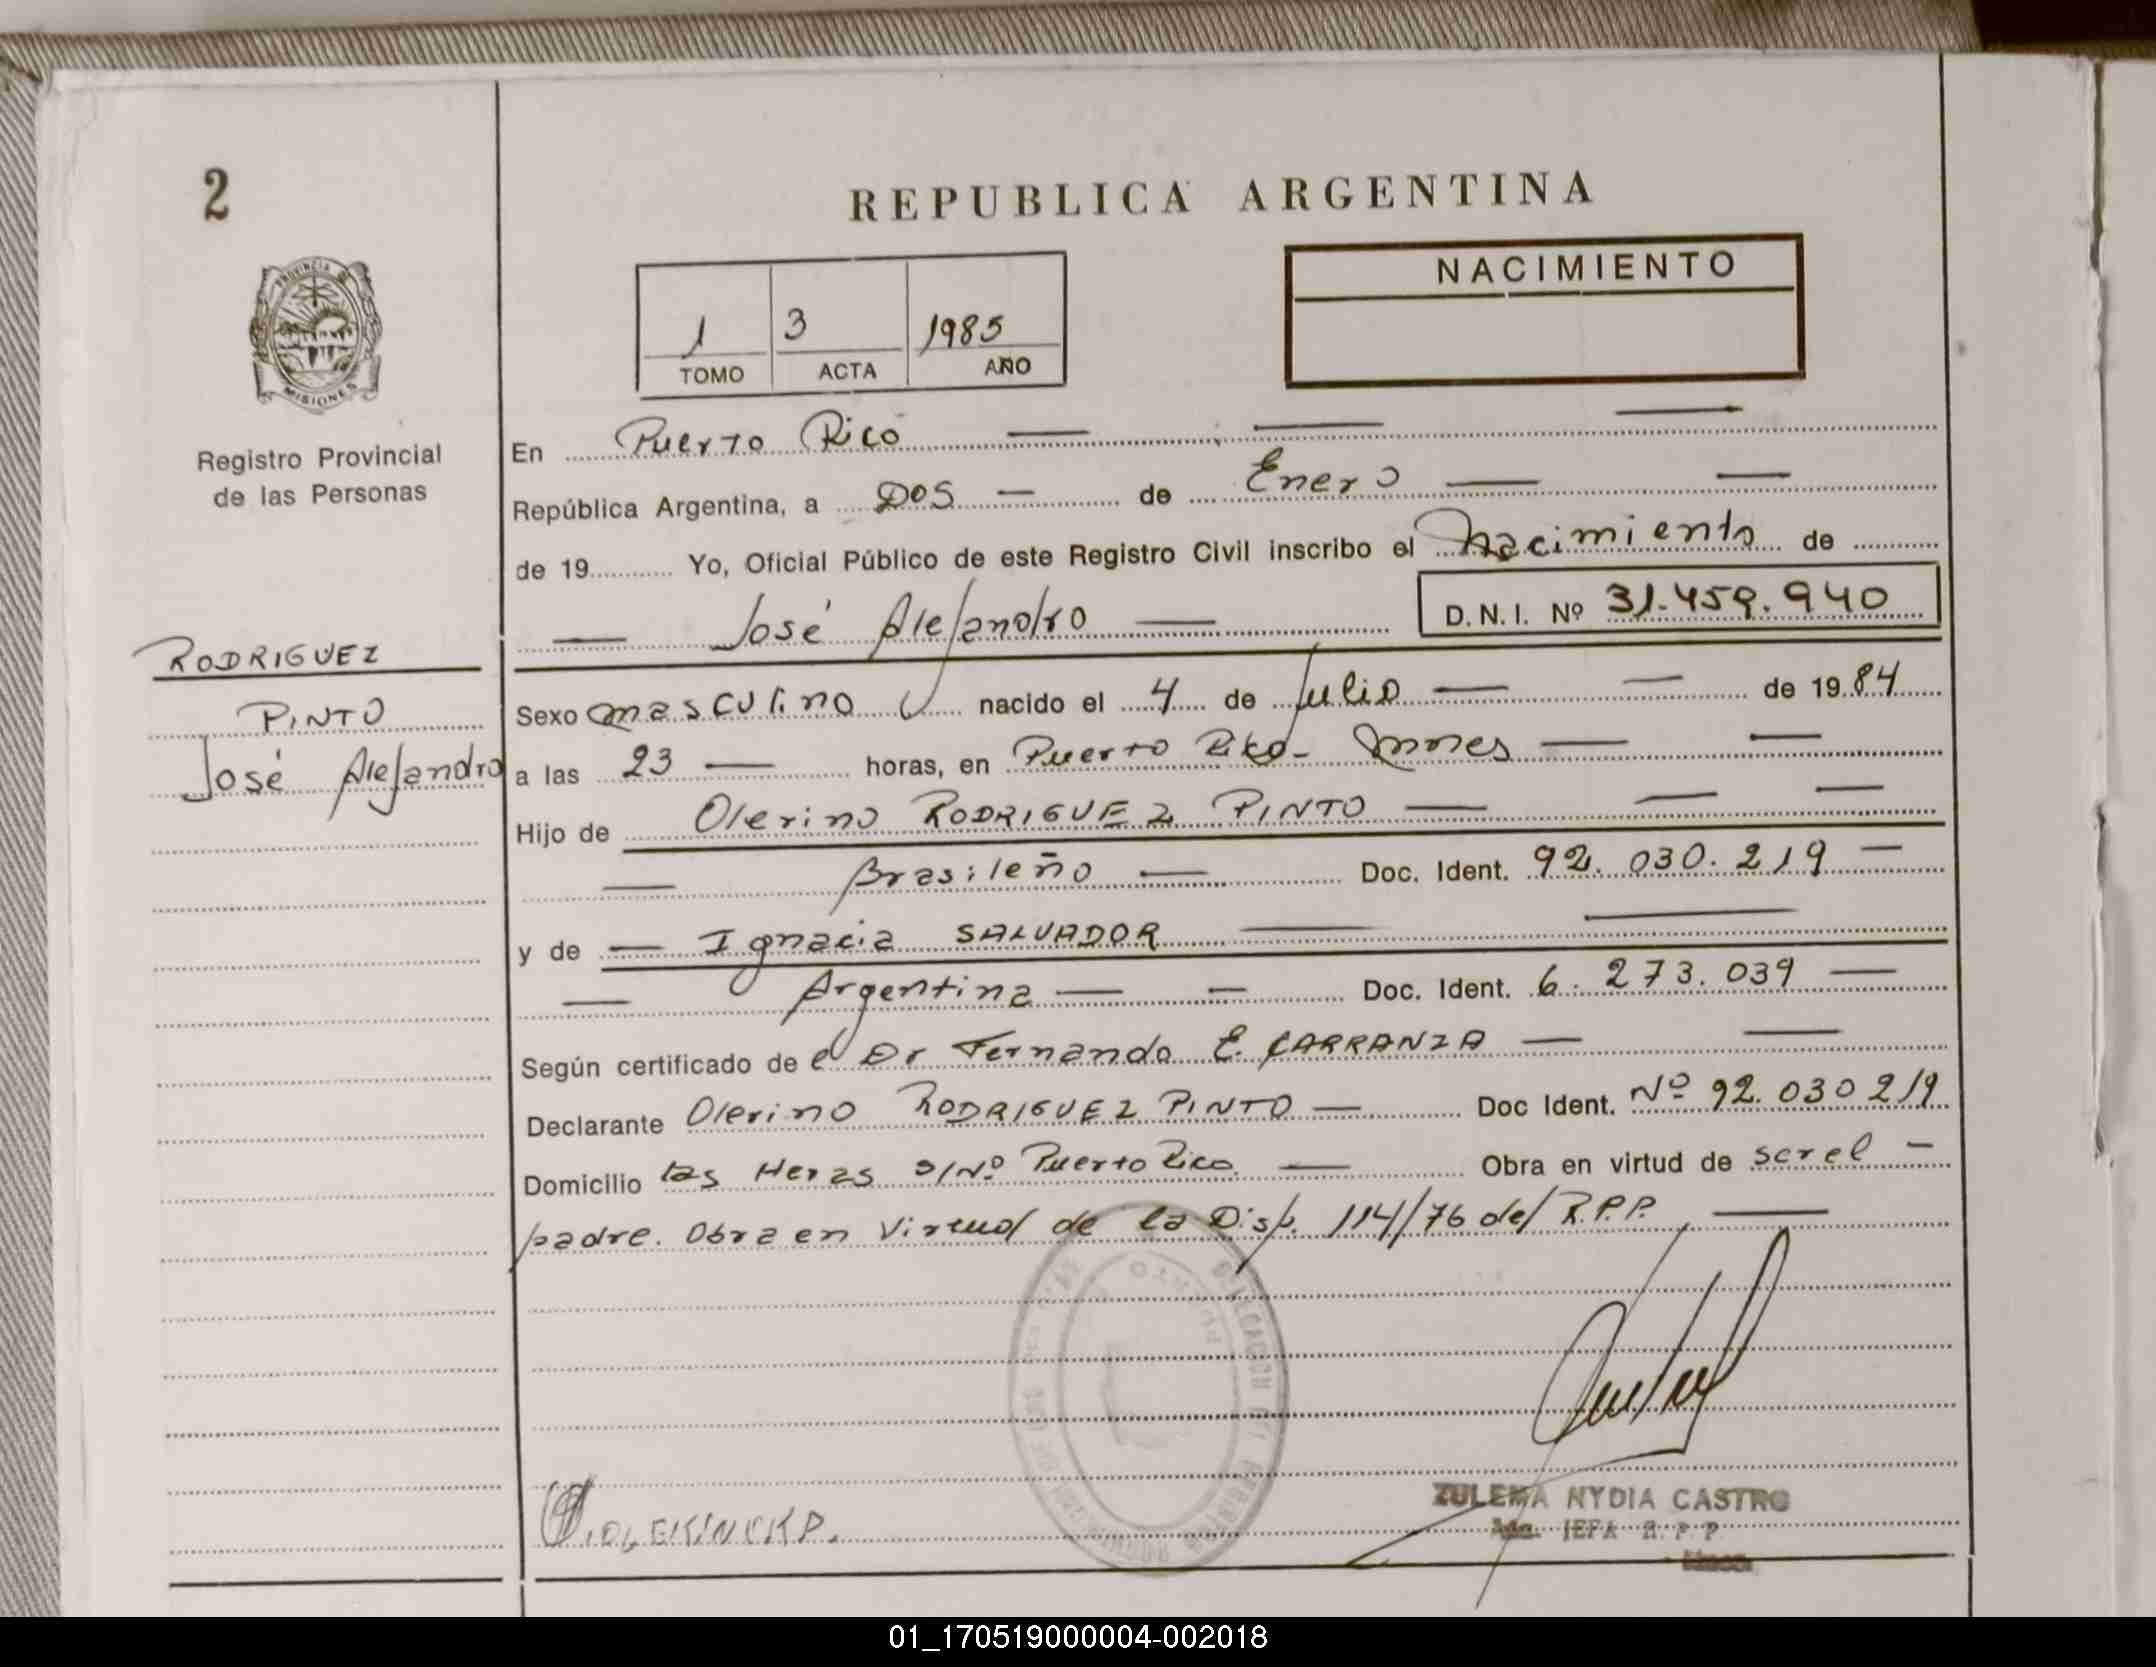 2
REPUBLICA ARGENTINA
PROVINCIA DE
MISIONES
Registro Provincial
de las Personas
1 3 1985
TOMO ACTA AÑO
NACIMIENTO
En Puerto Rico
República Argentina, a Dos de Enero
de 19 Yo, Oficial Público de este Registro Civil inscribo el Nacimiento de
José Alejandro D.N.I. Nº 31.459.940
RODRIGUEZ
PINTO
José Alejandro
Sexo masculino nacido el 4 de Julio de 1984
a las 23 horas, en Puerto Rico - Mnes
Hijo de Olerino RODRIGUEZ PINTO
Brasileño Doc. Ident. 92.030.219
y de Ignacia SALVADOR
Argentina Doc. Ident. 6.273.039
Según certificado de el Dr Fernando E. CARRANZA
Declarante Olerino RODRIGUEZ PINTO Doc Ident. Nº 92.030219
Domicilio las Heras S/Nº Puerto Rico Obra en virtud de ser el
padre. Obra en Virtud de la Disp. 114/76 del R.P.P.
ZULEMA NYDIA CASTRO
JEFA R.P.P.
01_170519000004-002018